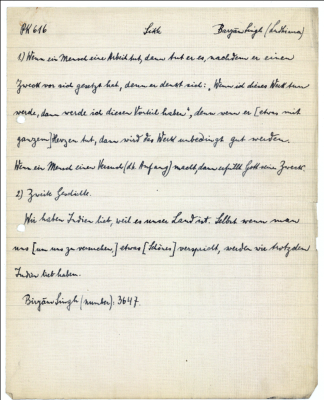 PK 616 Sikh Biryām Singh (Ludhiana)
1) Wenn ein Mensch eine Arbeit tut, dann tut er es, nachdem er einen
Zweck vor sich gesetzt hat, denn er denkt sich: „Wenn ich dieses Werk tun
werde, dann werde ich diesen Vorteil haben", denn wenn er [etwas mit
ganzem] Herzen tut, dann wird das Werk unbedingt gut werden.
Wenn ein Mensch einen Versuch (dt. Anfang) macht, dann erfüllt Gott seine Zweck.
2) Zweite Geschichte.
Wir haben Indien lieb, weil es unser Land ist. Selbst wenn man
uns [um uns zu versuchen] etwas [Schönes] verspricht, werden wir trotzdem
Indien lieb haben.
Singh (number): 3647.